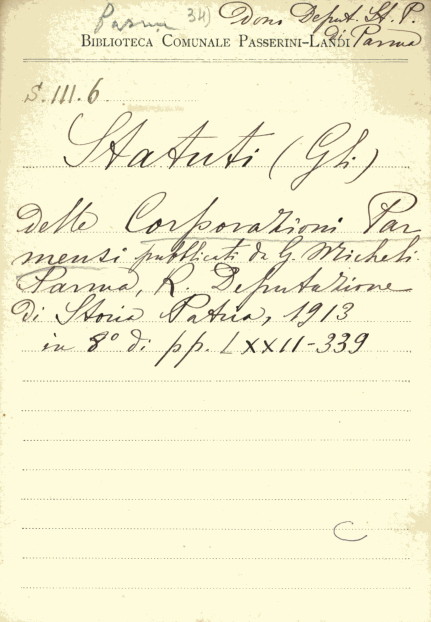 Parma 34) Dono Deput. St. P.
di Parma
BIBLIOTECA COMUNALE PASSERINI-LANDI
S. III. 6
Statuti (Gli)
delle Corporazioni Par
mensi pubblicati da G. Micheli.
Parma, R. Deputazione
di Storia Patria, 1913
in 8° di pp. LXXII-339